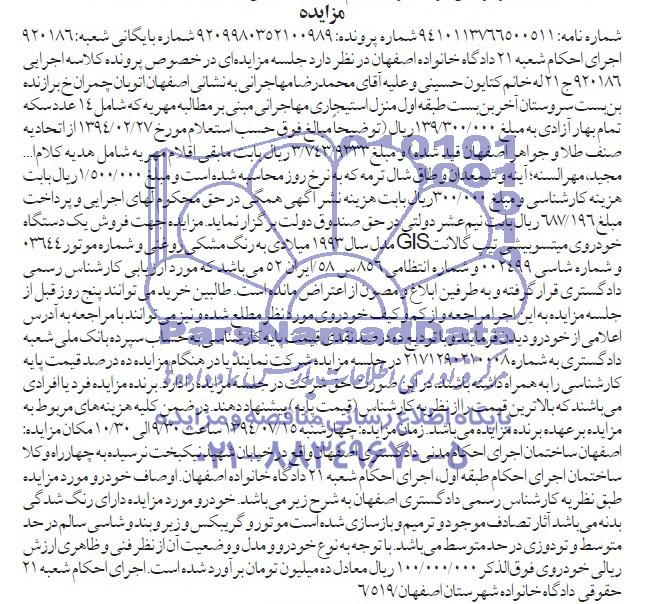 مزایده
شماره نامه: ۹۴۱۰۱۱۳۷۶۶۵۰۰۵۱۱ شماره پرونده: ۹۲۰۹۹۸۰۳۵۲۱۰۰۹۸۹ شماره بایگانی شعبه: ۹۲۰۱۸۶
اجرای احکام شعبه ۲۱ دادگاه خانواده اصفهان در نظر دارد جلسه مزایده‌ای در خصوص پرونده کلاسه اجرایی
۹۲۰۱۸۶ ج ۲۱ له خانم کتایون حسینی و علیه آقای محمدرضا مهاجرانی به نشانی اصفهان اتوبان چمران خ برازنده
بن‌بست سروستان آخر بن‌بست طبقه اول منزل استیجاری مهاجرانی مبنی بر مطالبه مهریه که شامل ۱۴ عدد سکه
تمام بهار آزادی به مبلغ ۱۳۹/۳۰۰/۰۰۰ ریال (توضیحاً مبلغ فوق حسب استعلام مورخ ۱۳۹۴/۰۲/۲۷ از اتحادیه
صنف طلا و جواهر اصفهان قید شده) و مبلغ ۳/۷۴۳/۹۳۳ ریال بابت مابقی اقلام مهریه شامل هدیه کلام‌ا...
مجید، مهرالسنه، آینه و شمعدان و طاق شال ترمه که به نرخ روز محاسبه شده است و مبلغ ۱/۵۰۰/۰۰۰ ریال بابت
هزینه کارشناسی و مبلغ ۳۰۰/۰۰۰ ریال بابت هزینه نشر آگهی همگی در حق محکوم‌لهای اجرایی و پرداخت
مبلغ ۶۸۷/۱۹۶ ریال بابت نیم‌عشر دولتی در حق صندوق دولت برگزار نماید. مزایده جهت فروش یک دستگاه
خودروی میتسوبیشی تیپ گالانت GIS مدل سال ۱۹۹۳ میلادی به رنگ مشکی روغنی و شماره موتور ۰۳۶۴۴
و شماره شاسی ۰۰۲۴۹۹ و شماره انتظامی ۸۵۶س۵۸/ ایران ۵۲ می‌باشد که مورد ارزیابی کارشناس رسمی
دادگستری قرار گرفته و به طرفین ابلاغ و مصون از اعتراض مانده است. طالبین خرید می‌توانند پنج روز قبل از
جلسه مزایده به این اجرا مراجعه و از کم و کیف خودروی مورد نظر مطلع شده و نیز می‌توانند با مراجعه به آدرس
اعلامی از خودرو دیدن فرمایند و با تودیع ده درصد نقدی قیمت پایه کارشناسی به حساب سپرده بانک ملی شعبه
دادگستری به شماره در جلسه مزایده شرکت نمایند یا در هنگام مزایده ده درصد قیمت پایه
کارشناسی را به همراه داشته باشند. در این صورت حق شرکت در جلسه مزایده را دارد. برنده مزایده فرد یا افرادی
می‌باشند که بالاترین قیمت را از نظریه کارشناس (قیمت پایه) پیشنهاد دهند. در ضمن کلیه هزینه‌های مربوط به
مزایده بر عهده برنده مزایده می‌باشد. زمان مزایده: چهارشنبه ۱۳۹۴/۰۷/۱۵ ساعت ۹/۳۰ الی ۱۰/۳۰ مکان مزایده:
اصفهان ساختمان اجرای احکام مدنی دادگستری اصفهان واقع در خیابان شهید نیکبخت نرسیده به چهارراه وکلا
ساختمان اجرای احکام طبقه اول، اجرای احکام شعبه ۲۱ دادگاه خانواده اصفهان. اوصاف خودرو مورد مزایده
طبق نظریه کارشناس رسمی دادگستری اصفهان به شرح زیر می‌باشد. خودرو مورد مزایده دارای رنگ شدگی
بدنه می‌باشد آثار تصادف موجود و ترمیم و بازسازی شده است موتور و گیربکس و زیروبند و شاسی سالم در حد
متوسط و تودوزی در حد متوسط می‌باشد. با توجه به نوع خودرو و مدل و وضعیت آن از نظر فنی و ظاهری ارزش
ریالی خودروی فوق‌الذکر ۱۰۰/۰۰۰/۰۰۰ ریال معادل ده میلیون تومان برآورد شده است. اجرای احکام شعبه ۲۱
حقوقی دادگاه خانواده شهرستان اصفهان ۶/۵۱۹/
ParsNamadData
مرکز فرآوری اطلاعات پارس نماد داده‌ها
پایگاه اطلاع رسانی مناقصه و مزایده
۰۲۱-۸۸۳۴۹۶۷۰-۵